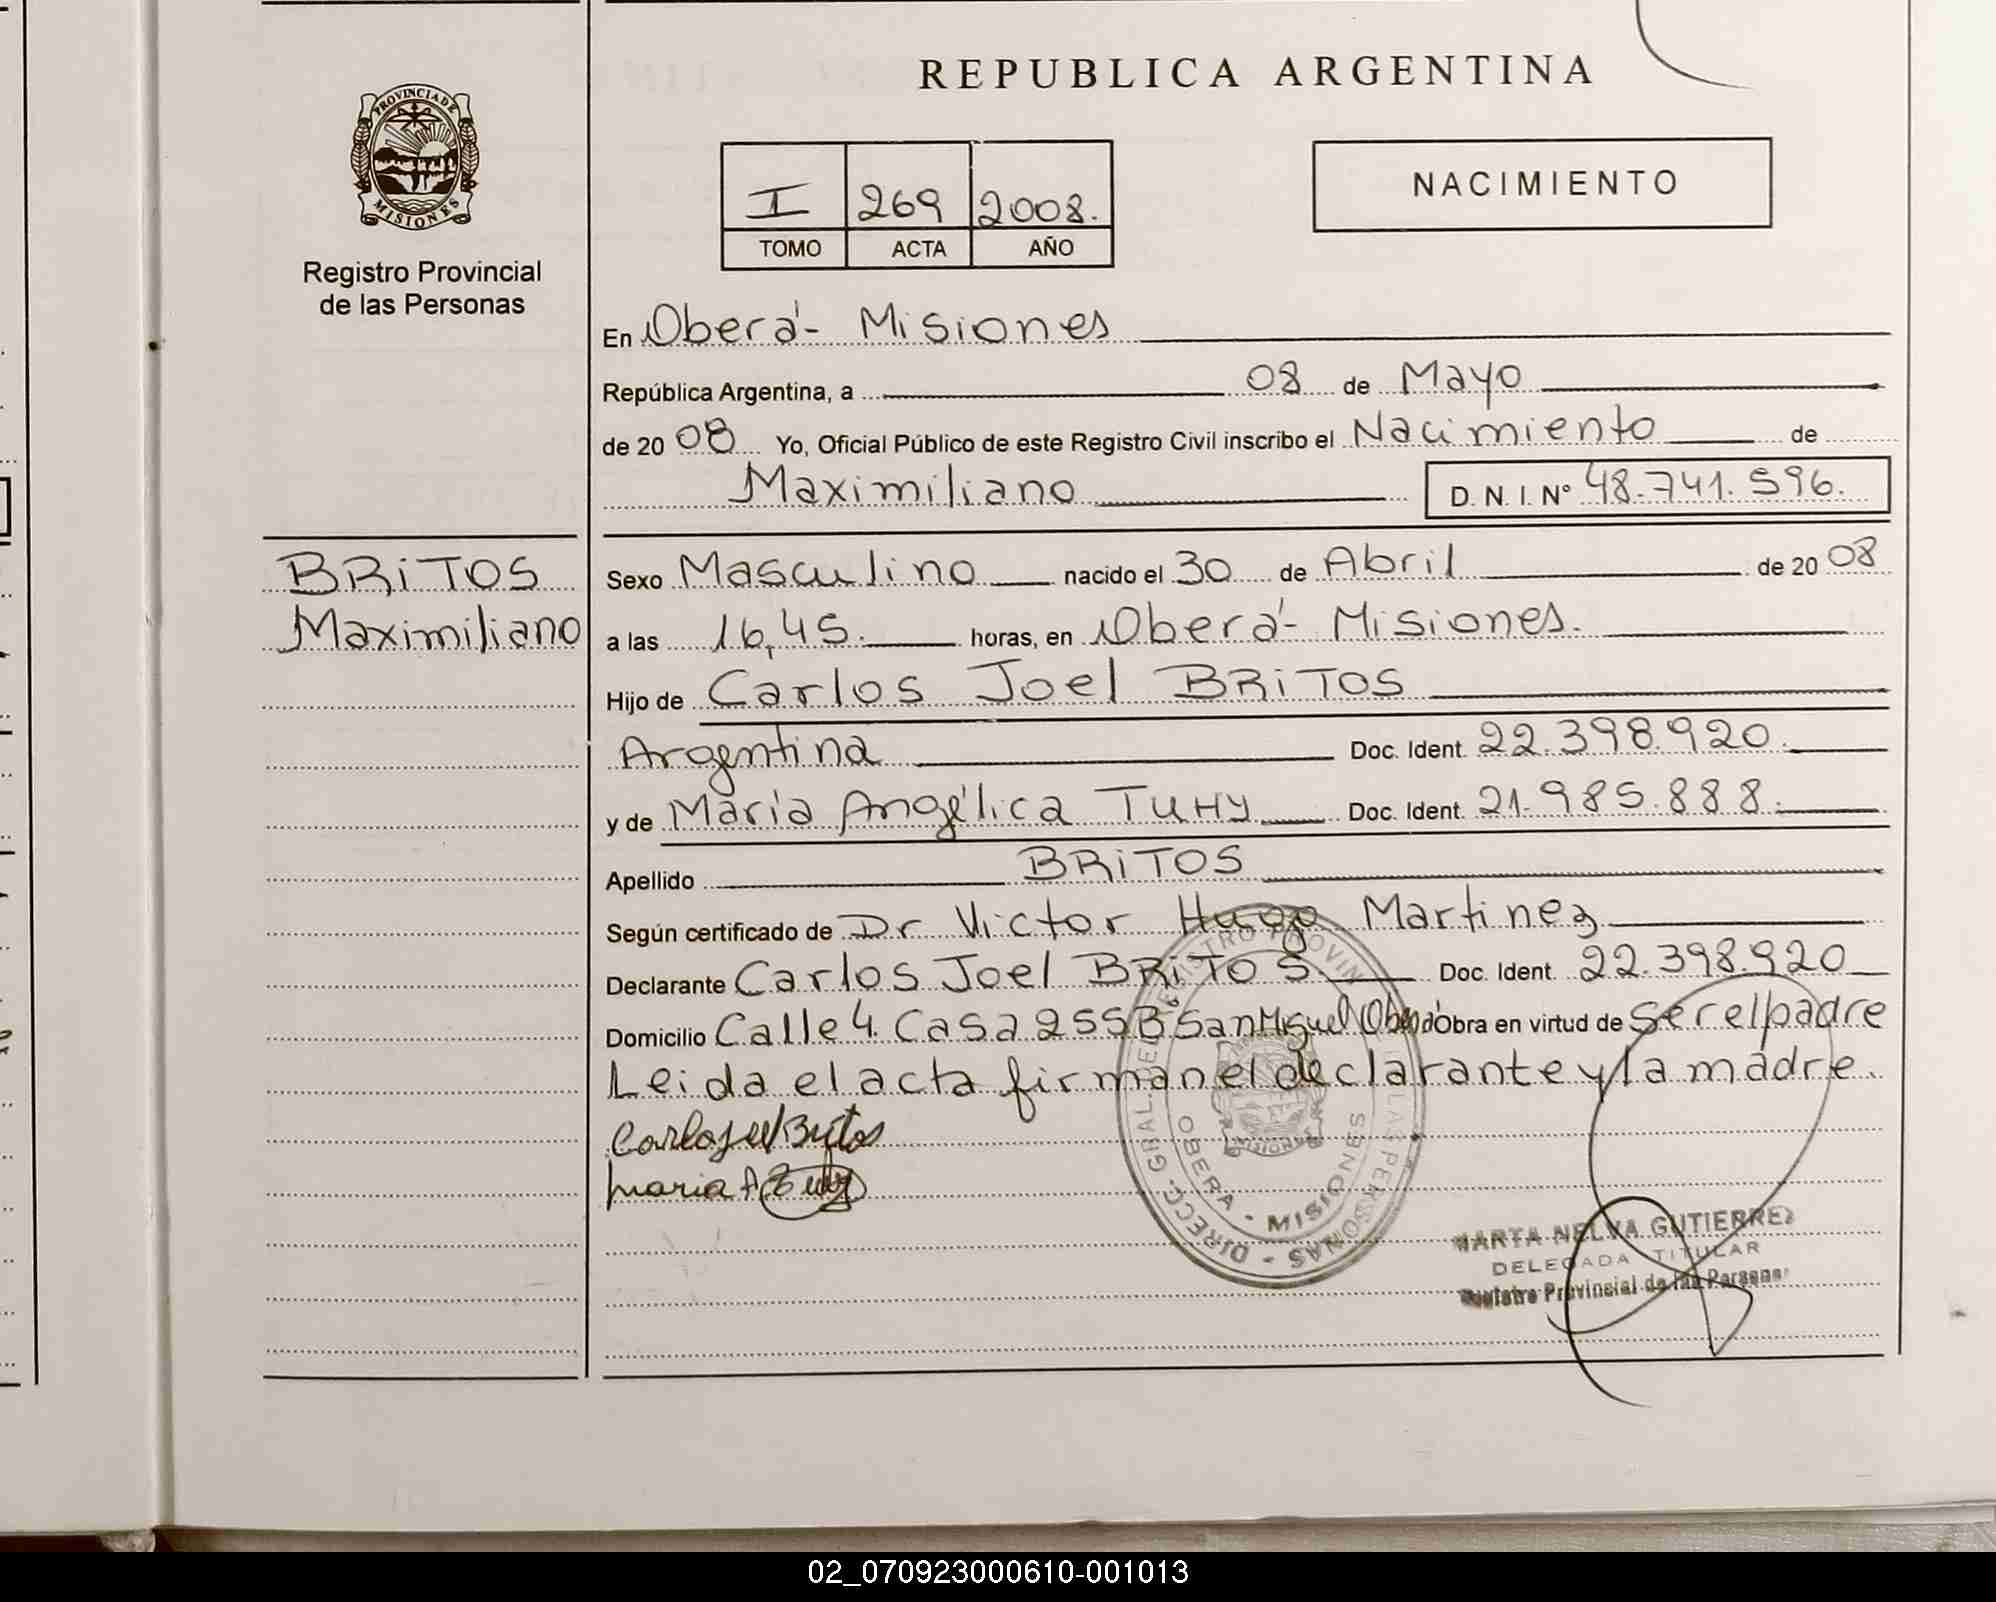 REPUBLICA ARGENTINA
PROVINCIA DE
MISIONES
Registro Provincial
de las Personas
I 269 2008.
TOMO ACTA AÑO
NACIMIENTO
En Oberá - Misiones
República Argentina, a 08 de Mayo
de 2008 Yo, Oficial Público de este Registro Civil inscribo el Nacimiento de
Maximiliano D. N. I. Nº 48.741.596.
BRiTOS
Maximiliano
Sexo Masculino nacido el 30 de Abril de 2008
a las 16,45. horas, en Oberá - Misiones.
Hijo de Carlos Joel BRiTOS
Argentina Doc. Ident. 22.398.920.
y de María Angélica TUHY Doc. Ident. 21.985.888.
Apellido BRiTOS
Según certificado de Dr Victor Hugo Martinez
Declarante Carlos Joel BRiTOS. Doc. Ident. 22.398.920
Domicilio Calle 4. Casa 255 Bº San Miguel Obra en virtud de ser el padre
Leida el acta firman el declarante y la madre.
Carlos Joel Britos
Maria A Tuhy
OBERA - MISIONES
MARTA NELVA GUTIERREZ
DELEGADA TITULAR
Registro Provincial de las Personas
02_070923000610-001013